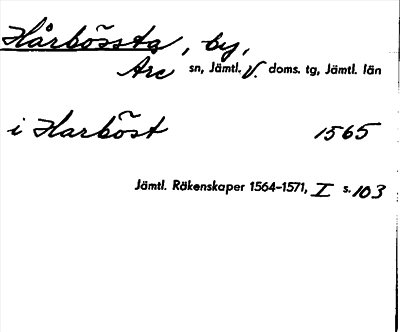 Hårbössta, by,
Are sn, Jämtl. V. doms. tg, Jämtl. län
i Harböst 1565
Jämtl. Räkenskaper 1564-1571, I s. 103